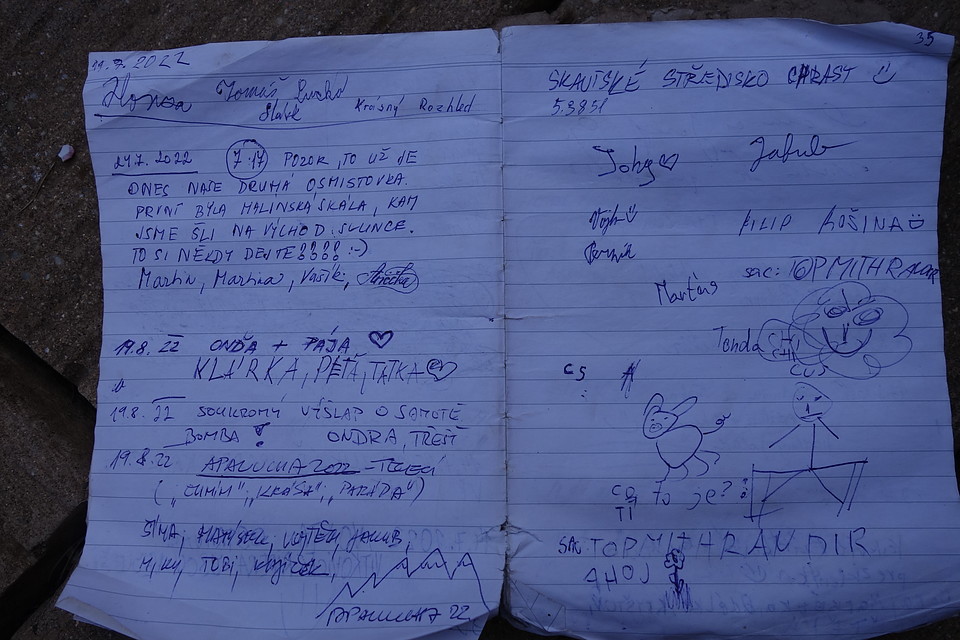 19.7.2022
Honza Tomáš
Slávek Krásný Rozhled
24.7. 2022 7:17 POZOR, TO UŽ JE
DNES NAŠE DRUHÁ OSMISTOVKA.
PRVNÍ BYLA MALINSKÁ SKÁLA, KAM
JSME ŠLI NA VÝCHOD SLUNCE.
TO SI NĚKDY DEJTE!!!! :-)
Martin, Martina, Vašík, Anička
19.8. 22 ONĎA + PÁJA ♥
KLÁRKA, PÉŤA, TAŤKA
19.8. 22 SOUKROMÝ VÝŠLAP O SAMOTĚ
BOMBA! ONDRA, TŘEŠŤ
19.8.22 APALUCHA 2022 -
SÍMA, VOJTĚCH, JAKUB,
MIKY, TOBI,
APALUCHA 22
35
SKAUTSKÉ STŘEDISKO CHRAST
53831
Johy ♥
Vojta
FILIP KOŠINA
sac: TOPMITHRANDIR
Martin
Tonda
CUS
CS
co to je?
TI
SAC: TOPMITHRANDIR
AHOJ